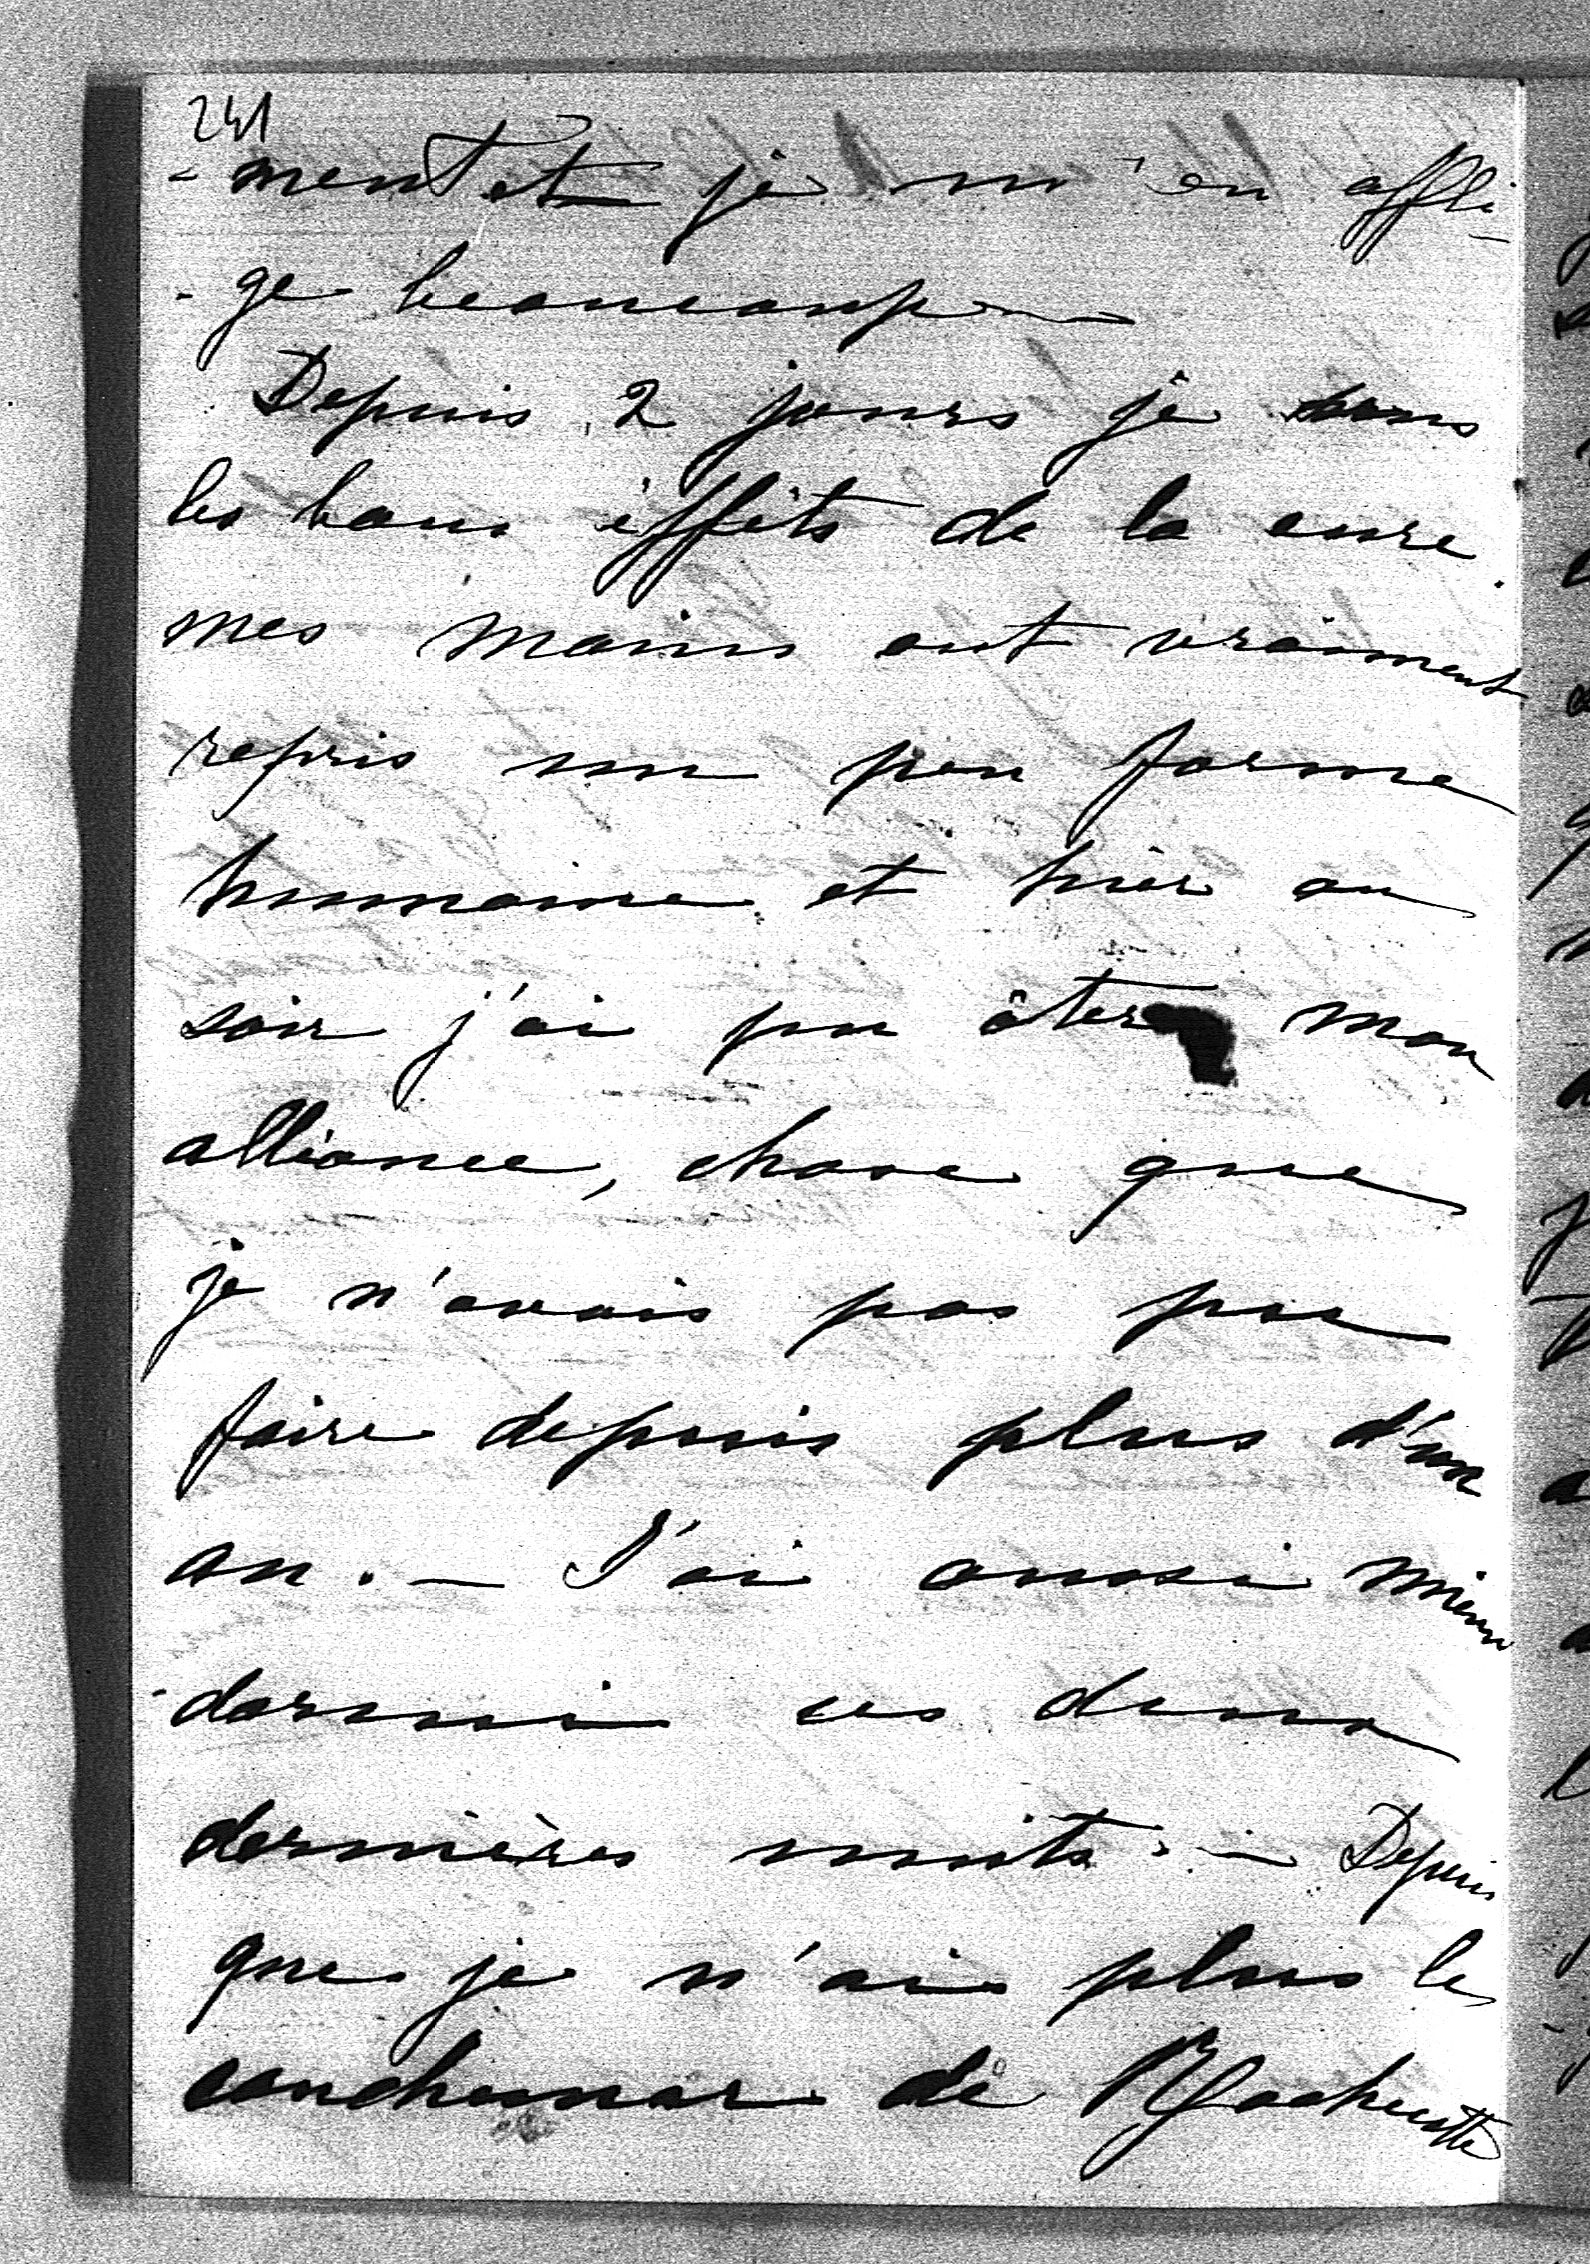 241
- ment et je m'en affli-
- ge beaucoup —
Depuis 2 jours je sens
les bons éffêts de la cure.
mes mains ont vraiment
repris un peu forme
humaine et hier au
soir j'ai pu ôter mon
alliance, chose que
je n'avais pas pu
faire depuis plus d'un
an. — J'ai aussi mieux
dormi ces deux
dernières nuits. — Depuis
que je n'ai plus le
cauchemar de